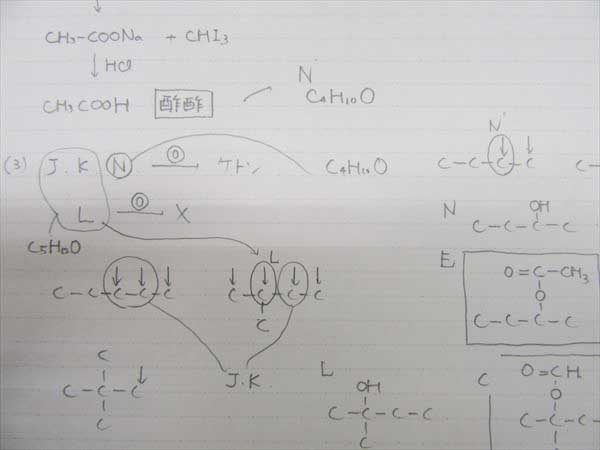 CH3-COONa + CHI3
↓HCl
CH3COOH 酢酸
N
C4H10O
(3) J.K N ⓪ ケトン C4H10O
L ⓪ X
C5H12O
N
C-C-C-C
N
OH
C-C-C-C
E
O=C-CH3
O
C-C-C-C
L
C-C-C-C-C
C-C-C-C
C
J.K.
C
C-C-C
C
L
OH
C-C-C-C
C
C
O=CH
O
C-C-C-C